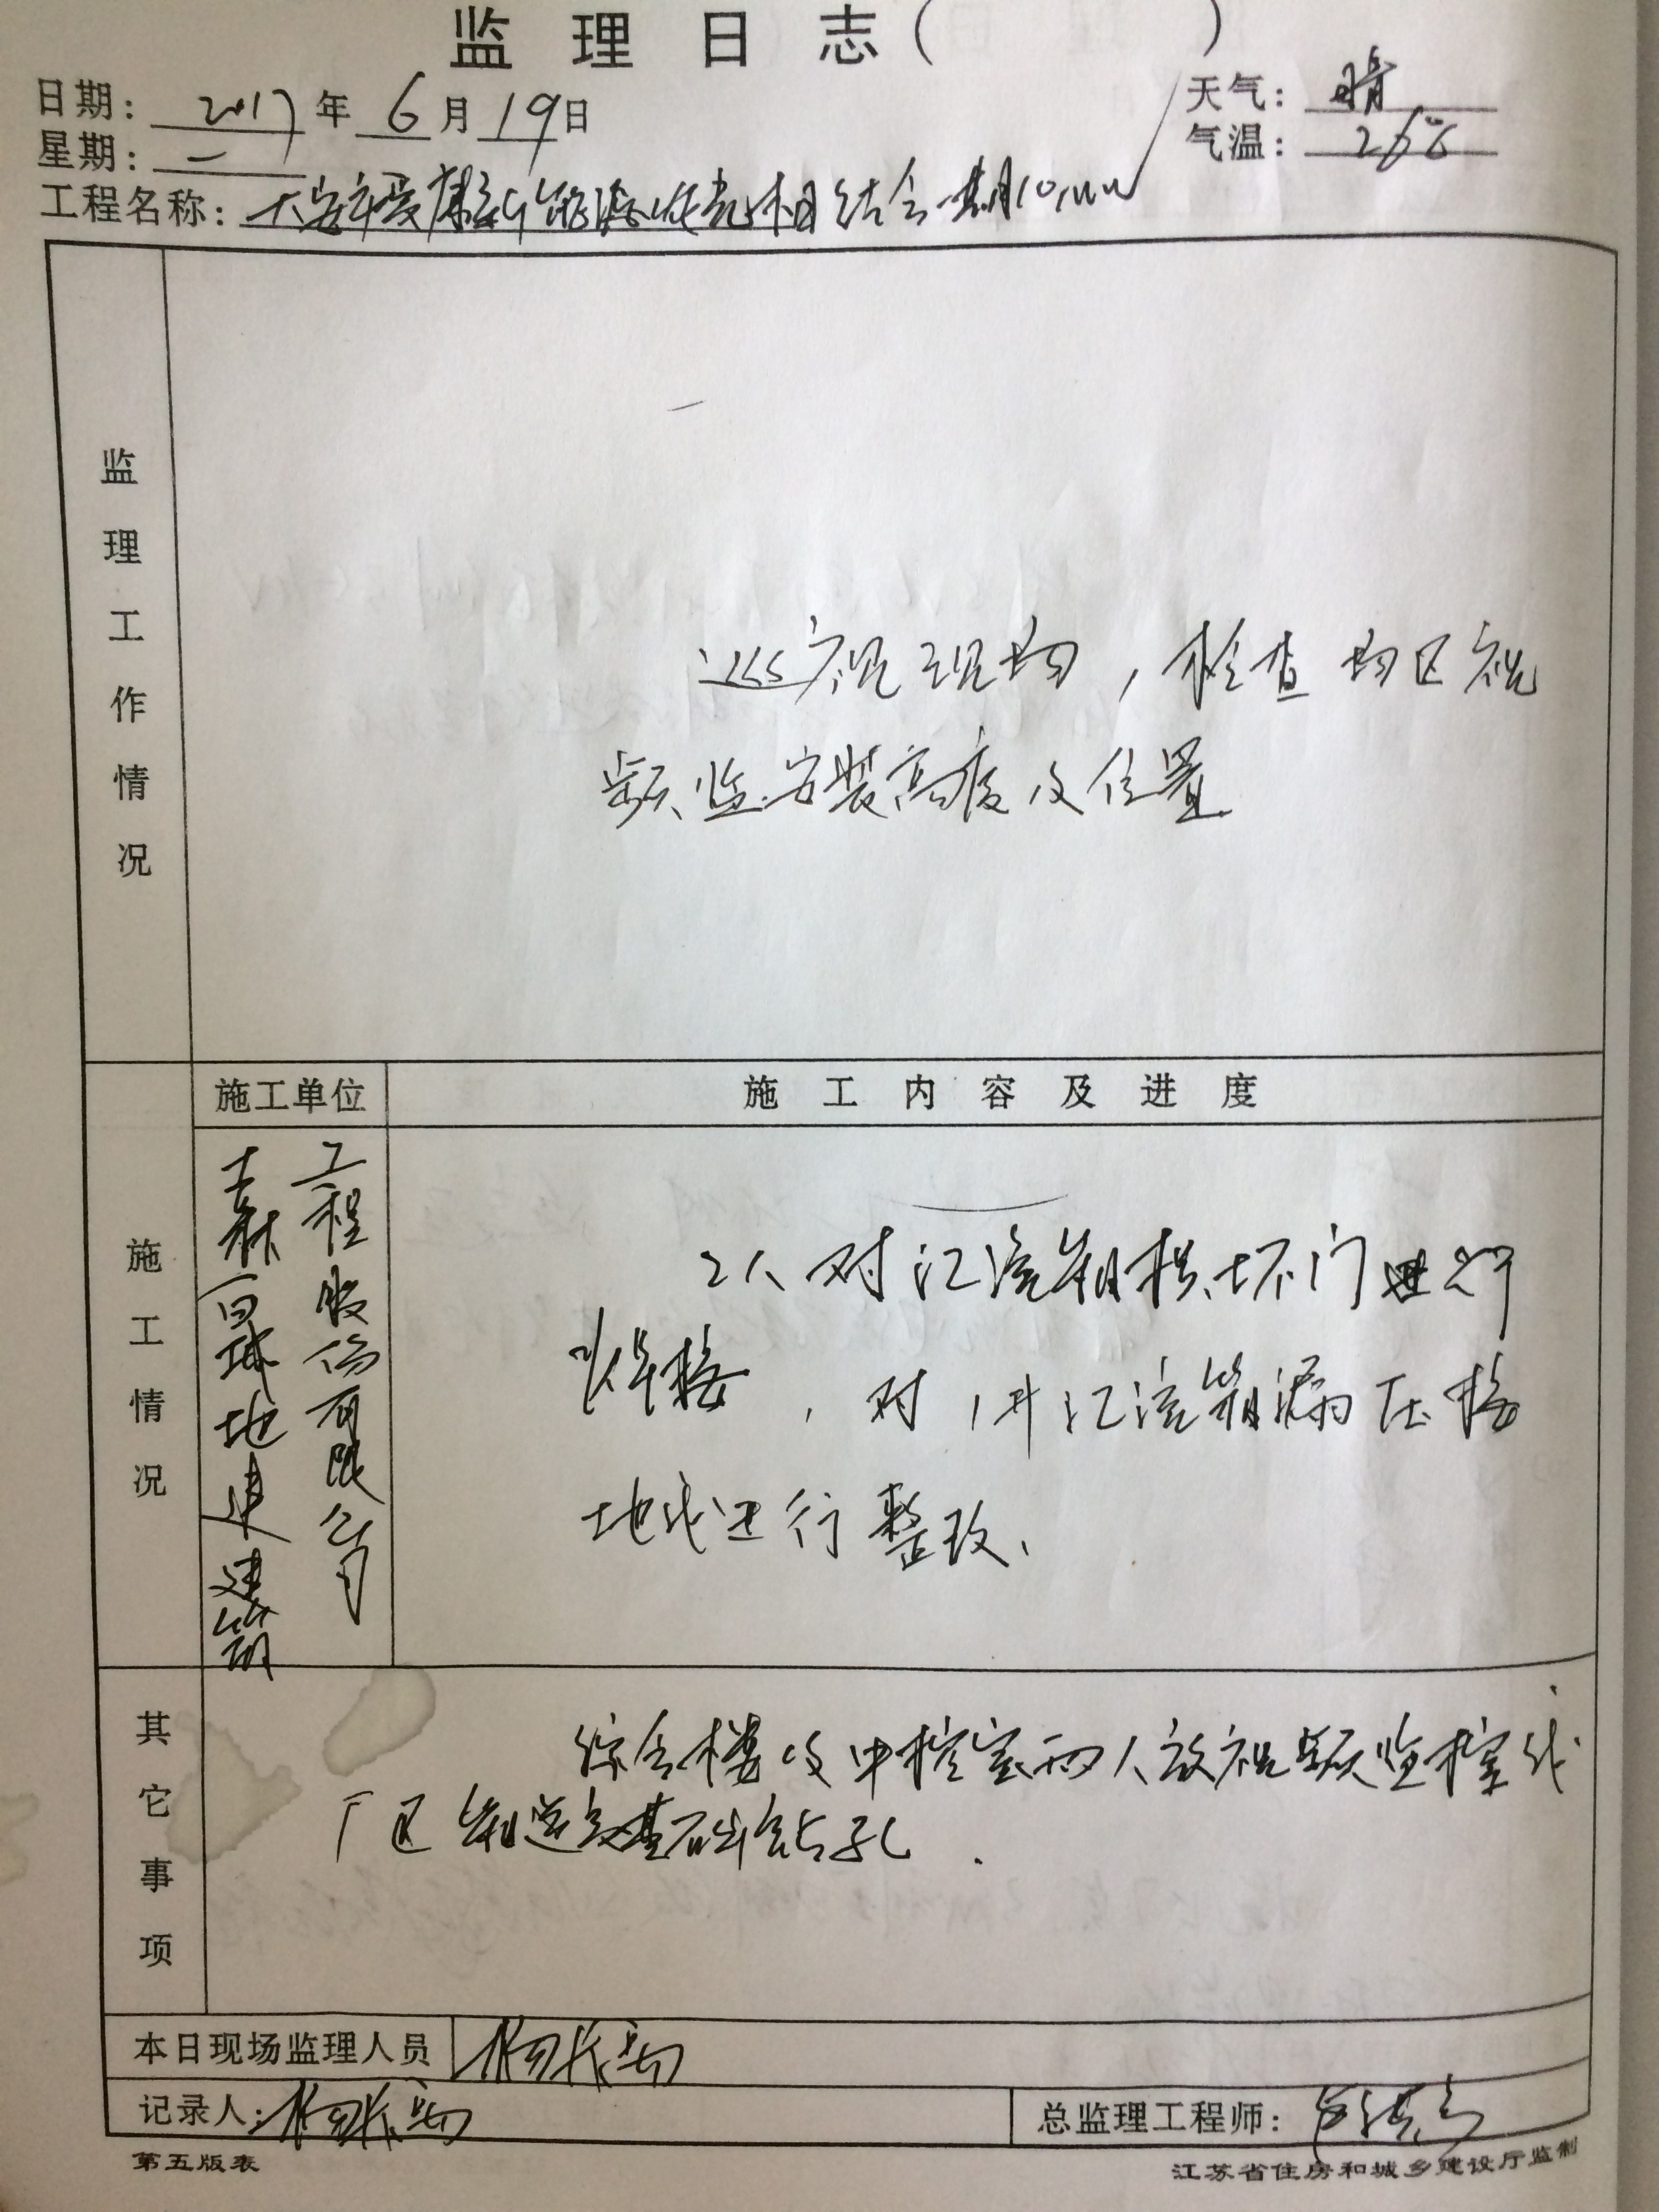 监理日志（ ）
日期：2017年6月19日
天气：晴
星期：一
气温：26℃
工程名称：大安市爱康新能源 光相结合一期10MW
监理工作情况
巡视现场，检查场区视
频监安装高度及位置
施工单位
施工内容及进度
施工情况
地建建筑
工程股份有限公司
2人对汇流箱损坏门进行
焊接，对1井汇流箱漏压接
地线进行整改、
其它事项
综合楼及中控室两人放视频监控线
厂区 基础钻孔.
本日现场监理人员
记录人：
总监理工程师：
第五版表
江苏省住房和城乡建设厅监制